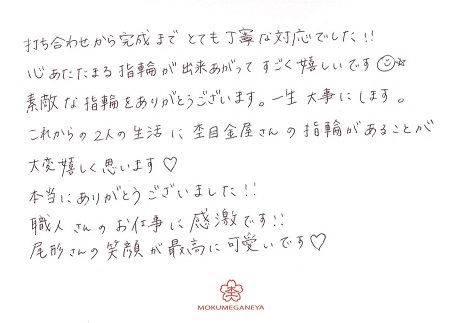 打ち合わせから完成まで とても丁寧な対応でした!!
心あたたまる指輪が出来あがって すごく嬉しいです☺☆
素敵な指輪をありがとうございます。一生大事にします。
これからの2人の生活に杢目金屋さんの指輪があることが
大変嬉しく思います♡
本当にありがとうございました!!
職人さんのお仕事に感激です!!
尾形さんの笑顔が最高に可愛いです♡
MOKUMEGANEYA